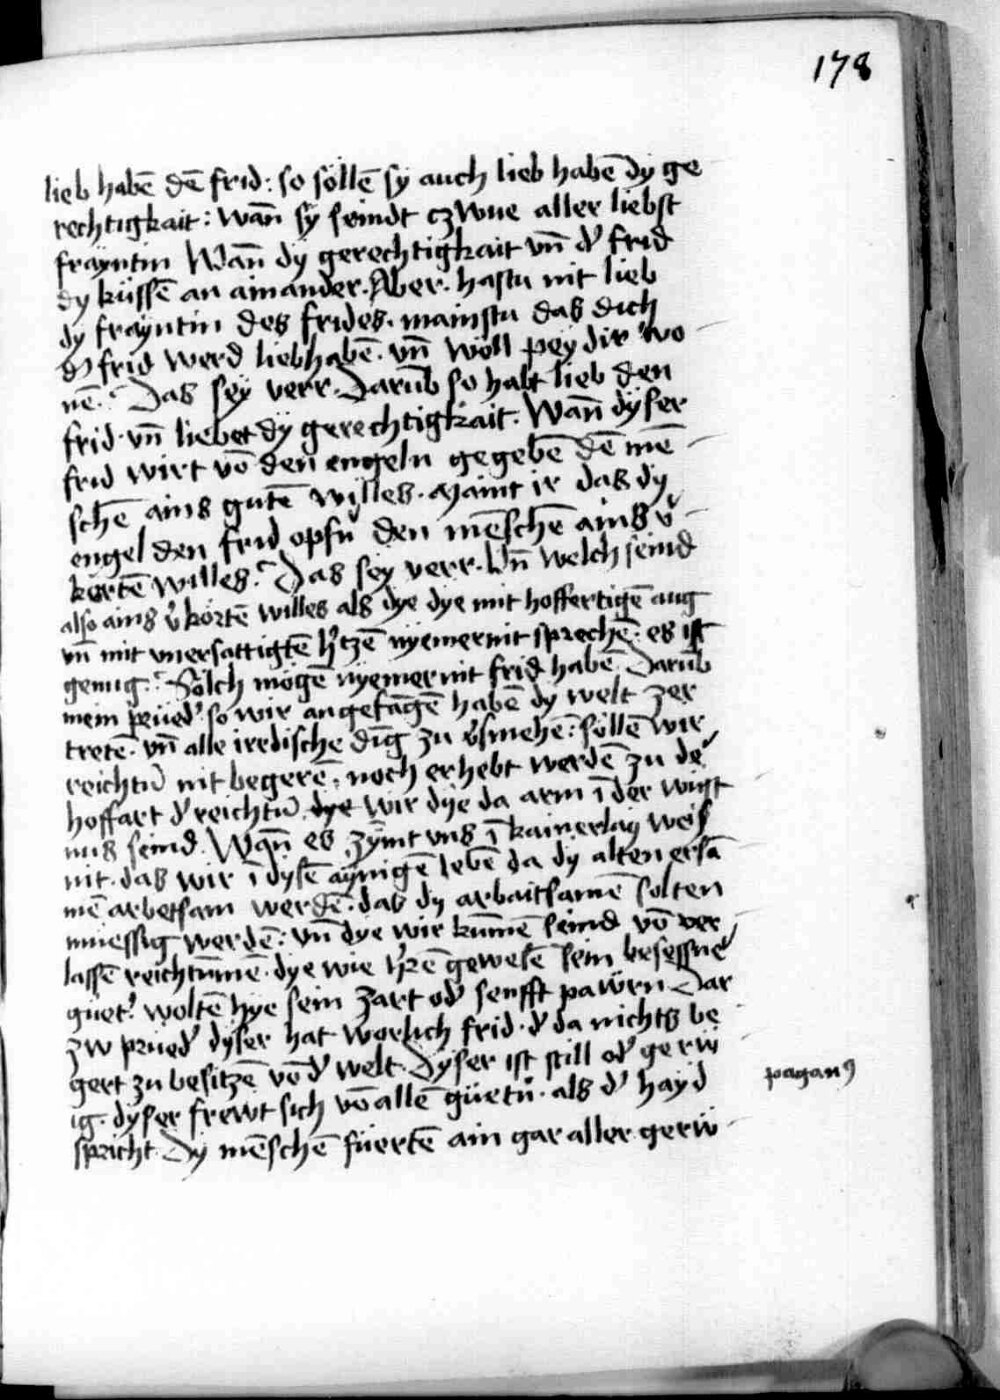 178
lieb habē dē frid: so söllē sy auch lieb habē dy ge
rechtigkait: Wan̄ sy seindt czwue aller liebst
fräyntin Wan̄ dy gerechtigkait vn̄ d' frid
dy küssē an ainander. Aber. hastu nit lieb
dy frayntin des frides. mainstu das dich
d' frid werd liebhabē. vn̄ wöll pey dir wo
nē. Das sey verr. Darūb so habt lieb den
frid. vn̄ liebet dy gerechtigkait. Wan̄ dyser
frid wirt vō den engeln gegebē dē mē
schē ains gutē willes. Maint ir das dy
engel den frid opfn̄ den mēschē ains v'
kertē willes. Das sey verr. Vn̄ welch seind
also ains v'körtē willes als dye dye mit hoffertigē aug
vn̄ mit vnersattigtē h'tzē nyemer nit sprechē. es ist
genug. Sölch mögē nyemer nit frid habē. Darūb
mein prüed' so wir angefāgē habē dy welt zer
tretē. vn̄ alle irdische dīg zu v'smehē: söllē wir
reichtū nit begerē. noch erhebt werdē zu de'
hoffart d' reichtū. dye wir dye da arm ī der wüst
nus seind. Wan̄ es zȳmt vns ī kainerlay weis
nit. das wir ī dysē aynigē lebē da dy alten ersā
mē arbetsam werdē. das dy arbaitsamē solten
muessig werdē: vn̄ dye wir kūmē seind vō ver
lassē reichtūmē. dye wie h'rē gewesē sein besessne'
güet'. woltē hye sein zart od' senfft pawrn. Dar
zw prüed' dyser hat worlich frid. d' da nichts be
gert zu besitzē vō d' welt. Dyser ist still od' gerw
ig. dyser frewt sich vō allē güetn̄. als d' hayd
spricht. Dy mēschē füertē ain gar aller gerw
paganꝰ